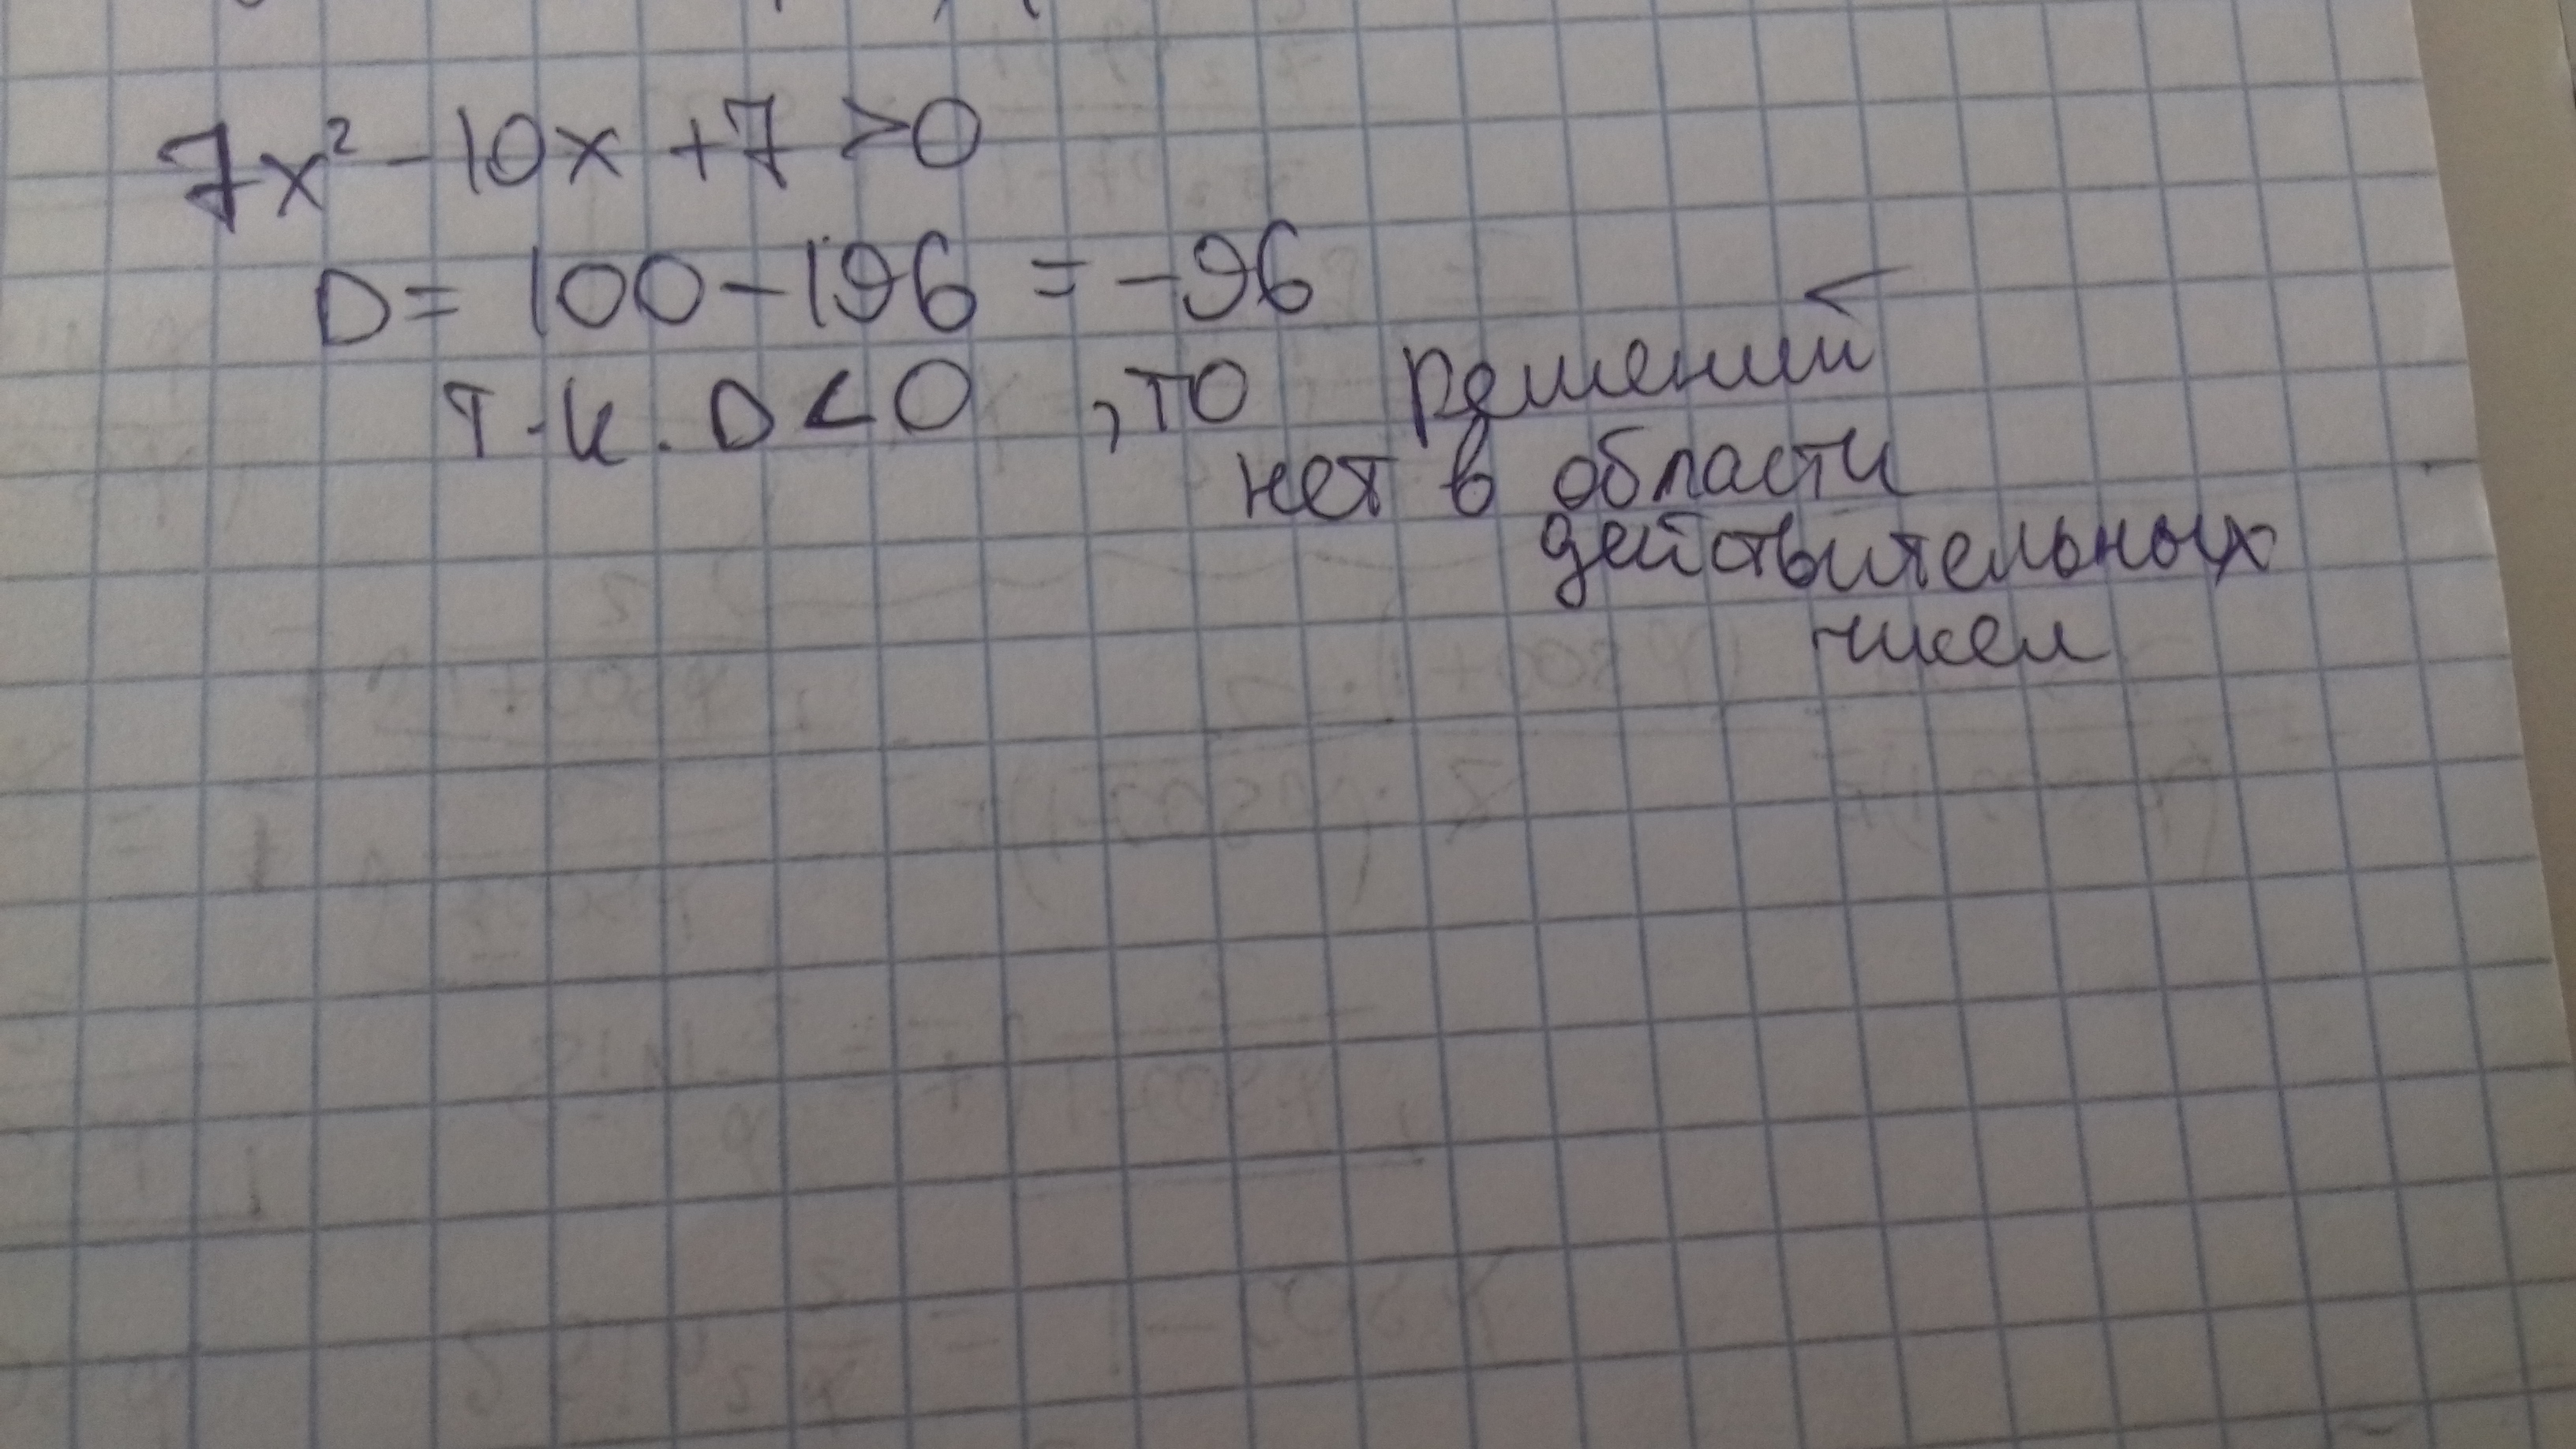 7x² - 10x + 7 > 0
D = 100 - 196 = -96
т.к. D < 0, то решений
нет в области
действительных
чисел